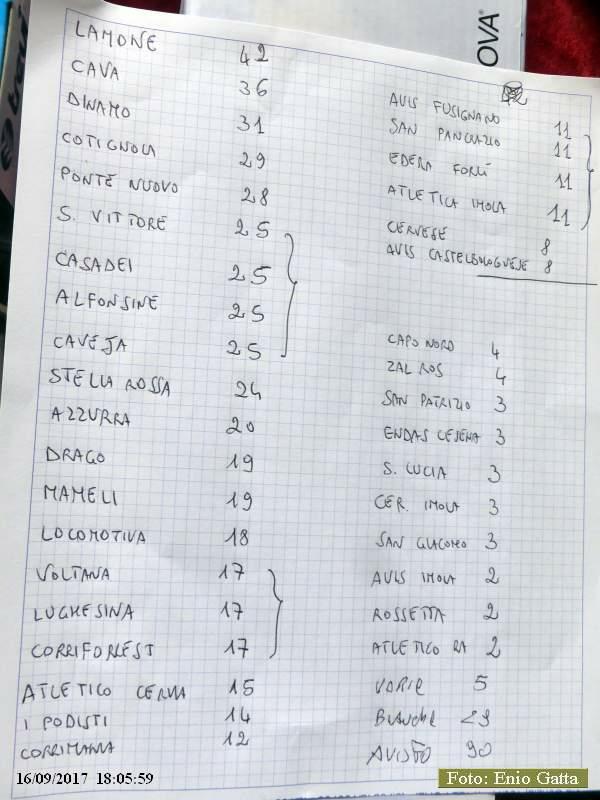 OVA
LAMONE 42
CAVA 36
DINAMO 31
COTIGNOLA 29
PONTE NUOVO 28
S. VITTORE 25
CASADEI 25
ALFONSINE 25
CAVEJA 25
STELLA ROSSA 24
AZZURRA 20
DRAGO 19
MAMELI 19
LOCOMOTIVA 18
VOLTANA 17
LUGHESINA 17
CORRIFORREST 17
ATLETICO CERVIA 15
I PODISTI 14
CORRIMANIA 12
AVIS FUSIGNANO 11
SAN PANCRAZIO 11
EDERA FORLÌ 11
ATLETICA IMOLA 11
CERVESE 8
AVIS CASTELBOLOGNESE 8
CAPO NORD 4
ZAL ROS 4
SAN PATRIZIO 3
ENDAS CESENA 3
S. LUCIA 3
CER. IMOLA 3
SAN GIACOMO 3
AVIS IMOLA 2
ROSSETTA 2
ATLETICO RA 2
VARIE 5
29
90
16/09/2017 18:05:59
Foto: Enio Gatta